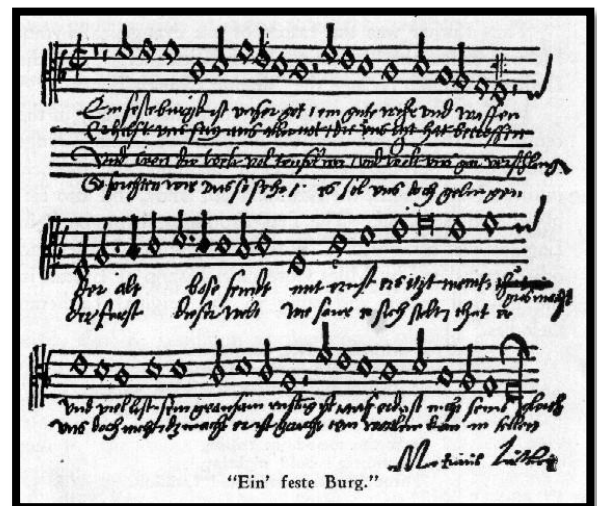 Ein feste burgk ist unser got / ein gute wehr und waffen
Er hilfft uns frey aus aller not / die uns itzt hat betroffen
Und wen die welt vol teufel wer / und wolt uns gar verschlingen
So furchten wir uns so sehr / es sol uns doch gelingen
der alt bose feindt mit ernst ers itzt meint gros macht
der furst dieser welt wie saur er sich stelt thut er
und viel list sein grausam rustung ist auf erd ist nicht seins gleich
uns doch nicht das macht er ist gericht ein wortlin kan in fellen
Martinus Luther
"Ein' feste Burg."